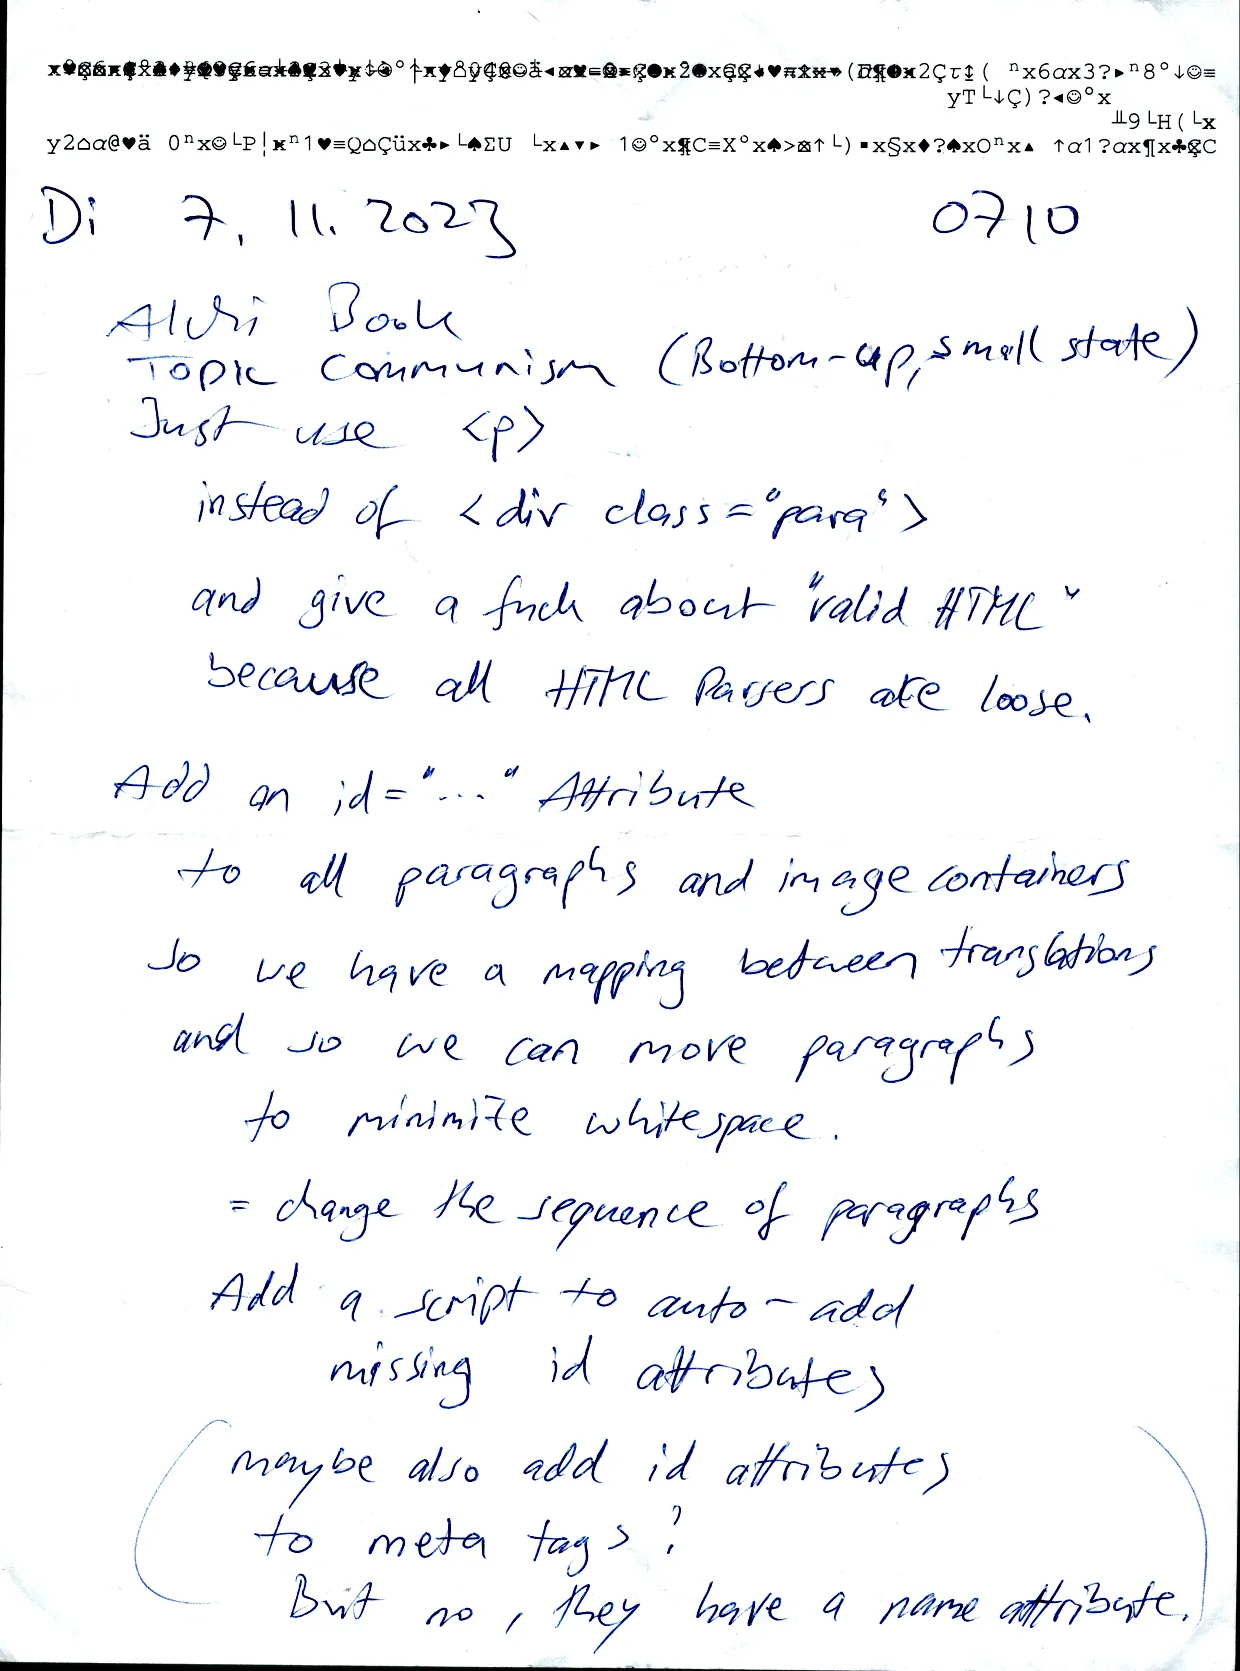 yT└↓Ç)?◄☺°x
╨9└H(└x
y2⌂α@♥ä 0ⁿx☺└P¦ж ⁿ1♥≡Q⌂Çüx♣►└♠ΣU └x▲▼► 1☺°x¶C≡X°x♠>⊠↑└)▪x§x♦?♠xOⁿx▲ ↑α1?αx¶x♣ÇC
Di 7. 11. 2023 0710
Alchi Book
Topic Communism (Bottom-up, small state)
Just use <p>
instead of <div class="para">
and give a fuck about "valid HTML"
because all HTML Parsers are loose.
Add an id="..." Attribute
to all paragraphs and image containers
so we have a mapping between translations
and so we can move paragraphs
to minimize whitespace.
= change the sequence of paragraphs
Add a script to auto-add
missing id attributes
(maybe also add id attributes
to meta tags?
But no, they have a name attribute.)